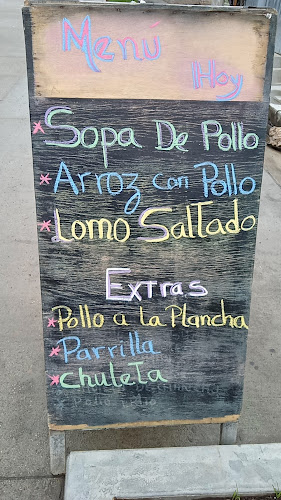 Menú
Hoy
* Sopa De Pollo
* Arroz con Pollo
* Lomo Saltado
Extras
* Pollo a La Plancha
* Parrilla
* Chuleta